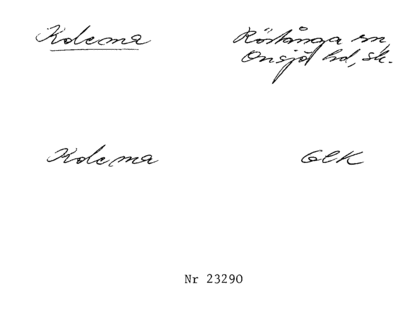 Kolema Röstånga sn,
Onsjö hd, Sk.
Kolema GEK
Nr 23290